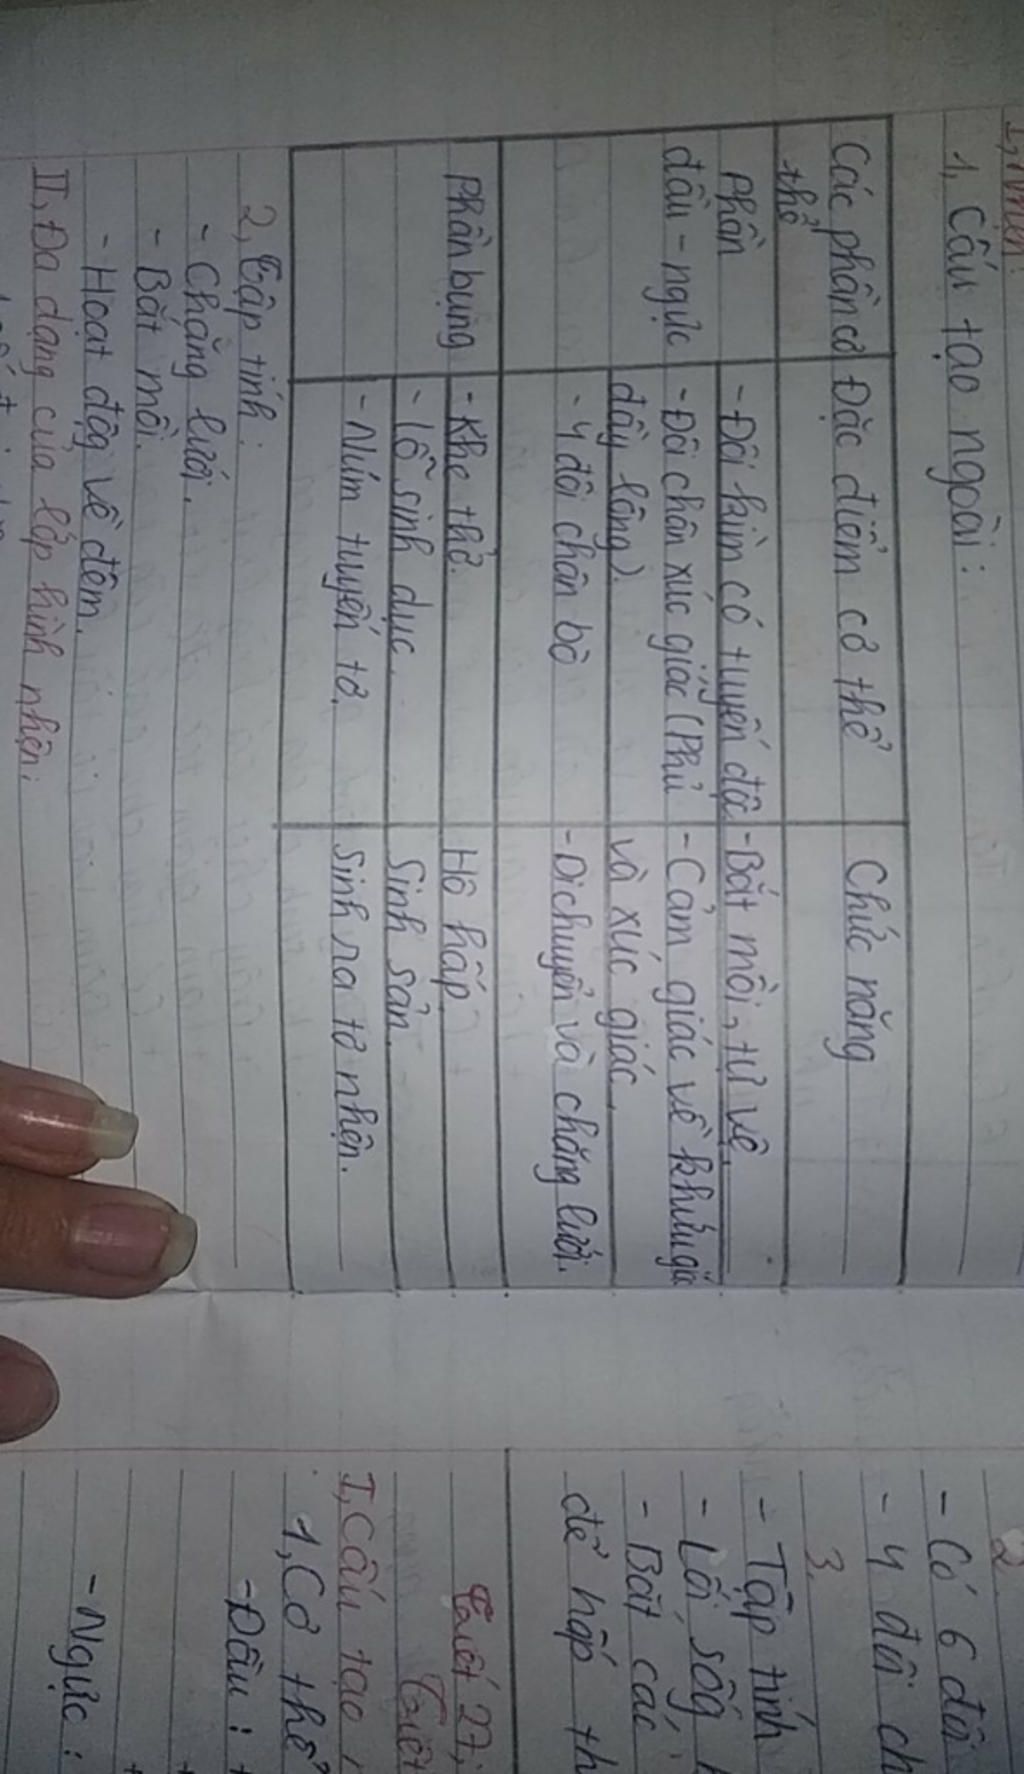 1, Cấu tạo ngoài:
Các phần cơ thể
Đặc điểm cơ thể
Chức năng
Phần
đầu - ngực
- Đôi kìm có tuyến độc
- Bắt mồi, tự vệ.
- Đôi chân xúc giác (Phủ
đầy lông).
- Cảm giác về khứu giá
và xúc giác.
- 4 đôi chân bò
- Di chuyển và chăng lưới.
Phần bụng
- Khe thở.
Hô hấp.
- lỗ sinh dục.
Sinh sản.
- Núm tuyến tơ.
Sinh ra tơ nhện.
2, Tập tính:
- Chăng lưới.
- Bắt mồi.
- Hoạt độg về đêm.
II, Đa dạng của lớp hình nhện:
2
- Có 6 đôi
- 4 đôi ch
3.
- Tập tính
- Lối sốg
- Bắt các
để hấp th
Tiết 27,
I, Cấu tạo
1, Cơ thể
- Đầu:
- Ngực: